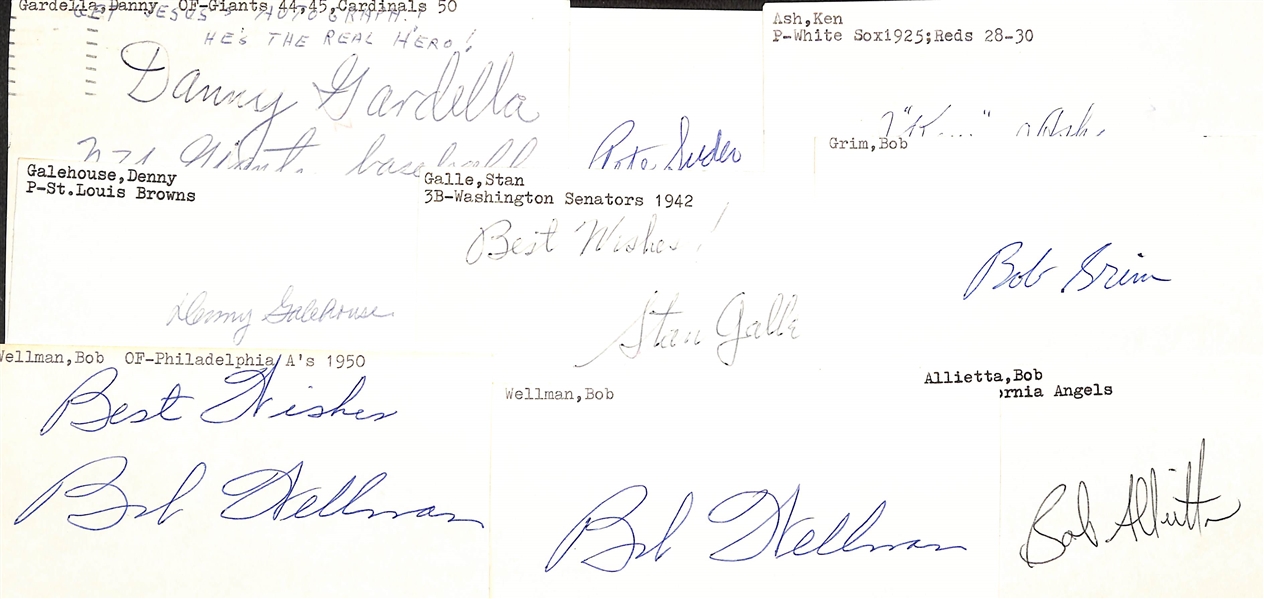 Gardella, Danny OF-Giants 44,45, Cardinals 50
GET JESUS' AUTOGRAPH!
HE'S THE REAL HERO!
Danny Gardella
baseball
Pete Suder
Ash,Ken
P-White Sox1925;Reds 28-30
Ash
Grim,Bob
Bob Grim
Galehouse,Denny
P-St.Louis Browns
Denny Galehouse
Galle,Stan
3B-Washington Senators 1942
Best Wishes!
Stan Galle
Wellman,Bob OF-Philadelphia A's 1950
Best Wishes
Bob Wellman
Wellman,Bob
Bob Wellman
Allietta,Bob
ornia Angels
Bob Allietta